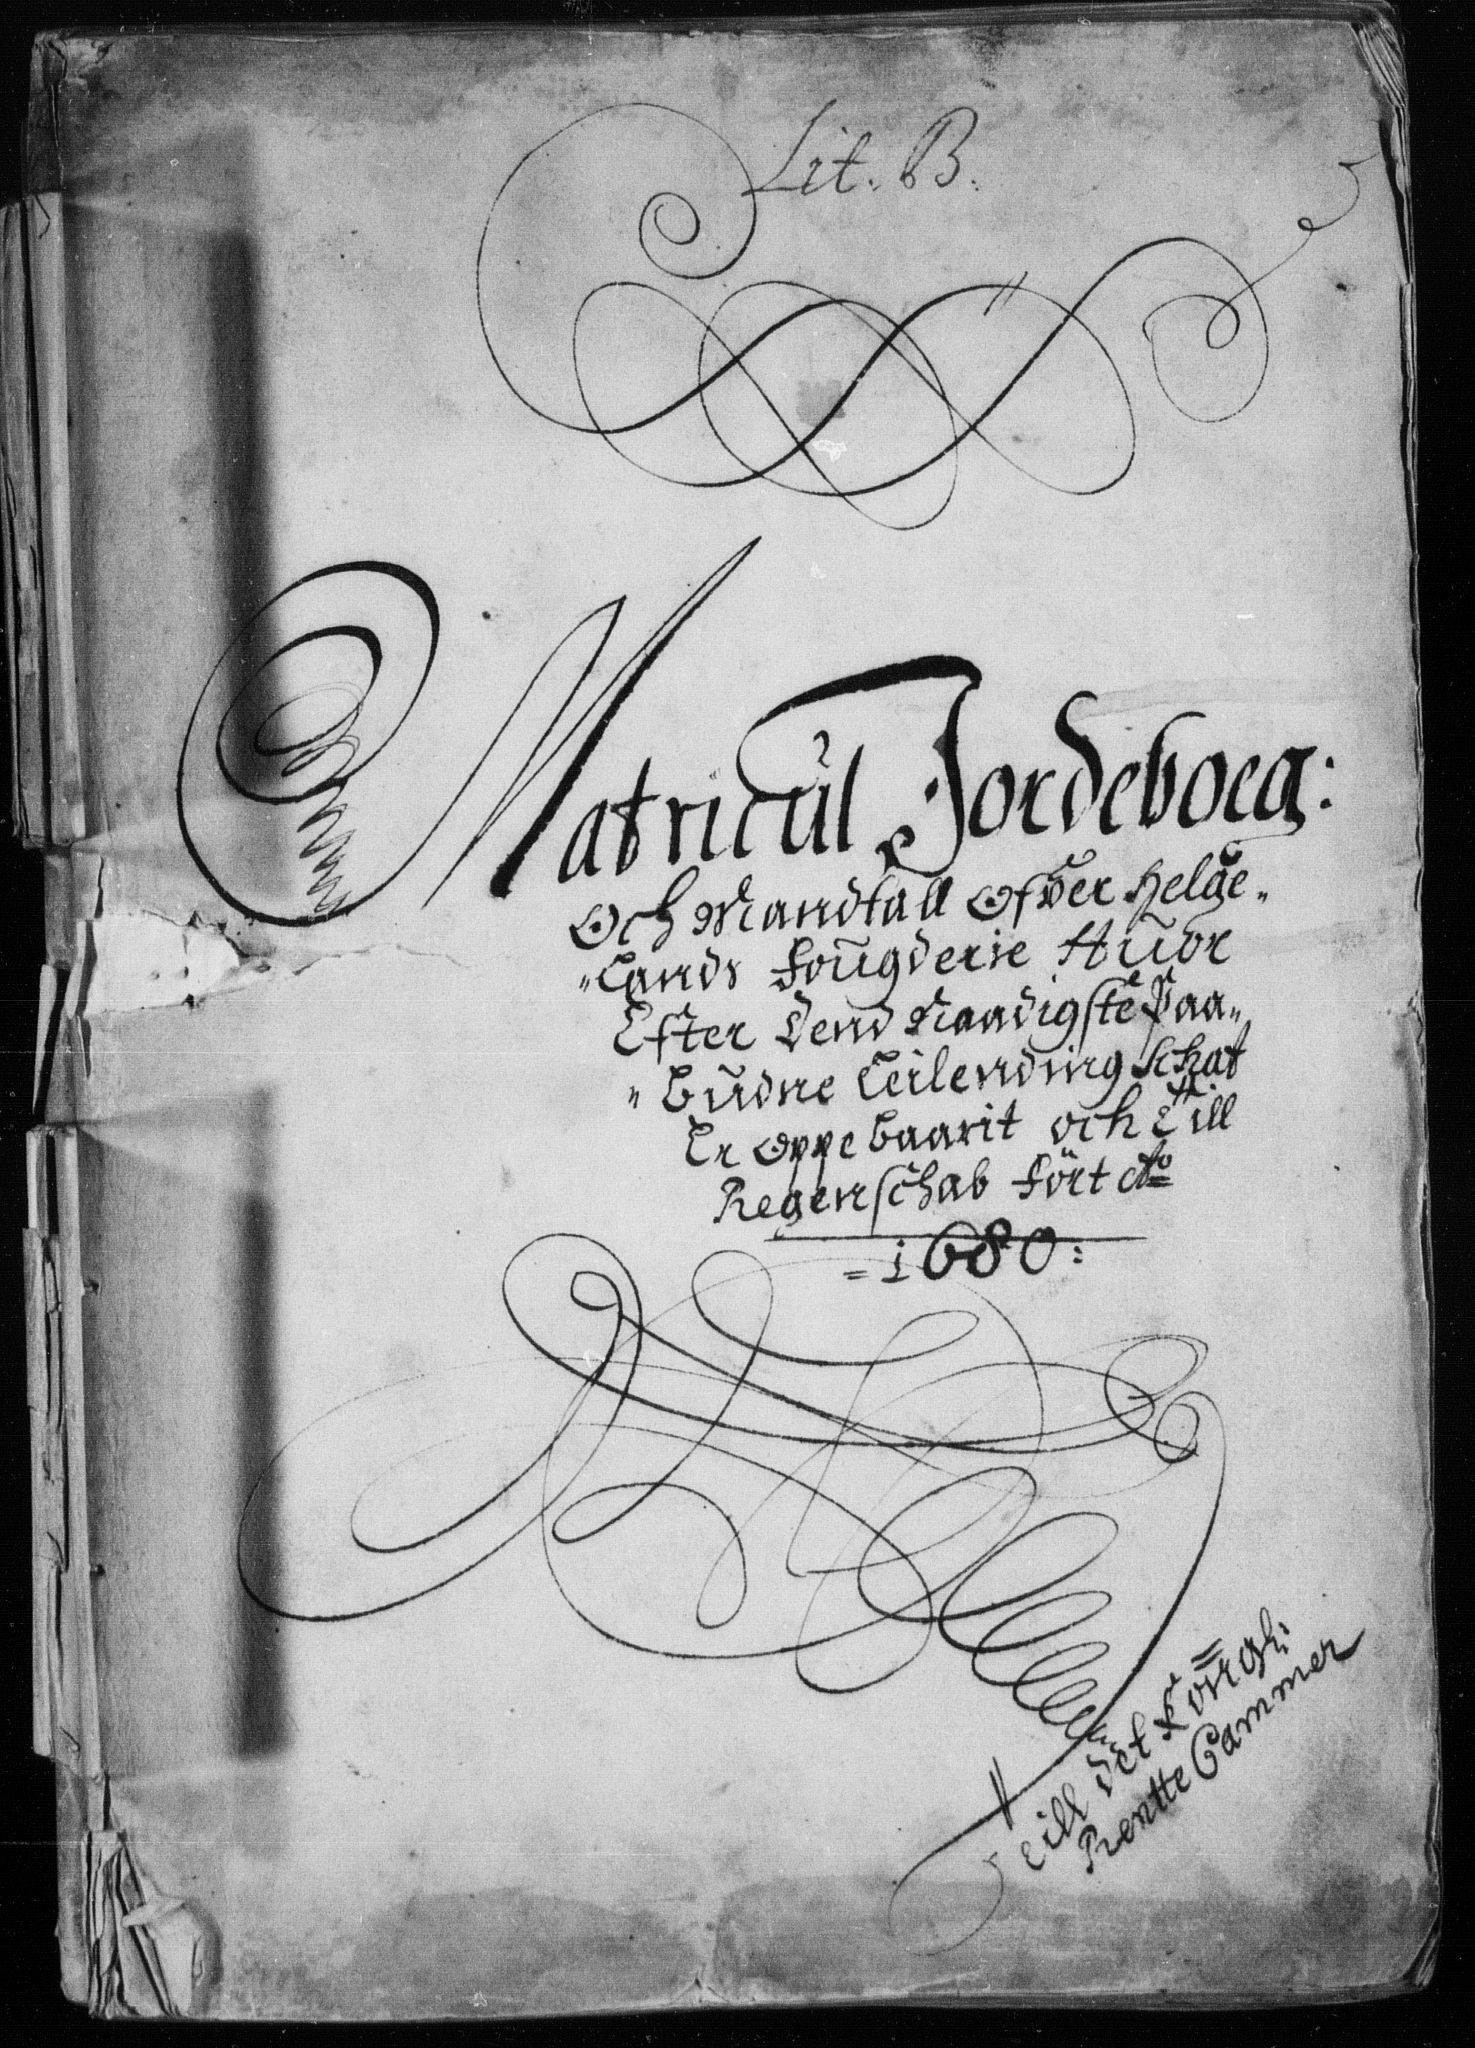 Lit. B.
Matricul Jordeboeg:
Och Mandtall Ofver Helge„
„Lands Fougderie Huor
Efter Dend Naadigste Paa„
„budne Leilending Schat
Er Oppebaarit och Till
Regenschab Fört Ao
1680:
Till Det Kongl:
Rentte Cammer